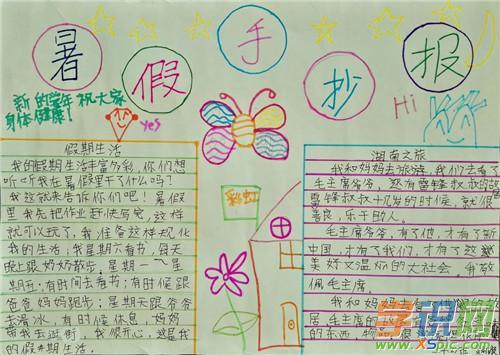 暑假手抄报
新的学年祝大家
身体健康！
yes
Hi
假期生活
我的假期生活丰富多彩，你们想
听听我在暑假里干了什么吗？
我这就来告诉你们吧！暑假
里我先把作业赶快写完，这样
就可以玩了，我准备这样规化
我的生活：我星期六看书，每天
晚上跟奶奶散步。星期一~星
期五：有时间去看书；有时候跟
爸爸妈妈跑步；星期天跟爷爷
去滑冰，有时候休息，妈妈
带我去逛街，我很开心，这是我
的假期生活。
彩虹
湖南之旅
我和妈妈去旅游，我们去看了
毛主席爷爷，还有雷锋叔叔的
雷锋叔叔十几岁的时候，就很
善良，乐于助人。
毛主席爷爷，有了他，才有了新
中国，才有了我们，才有了这
美好又温暖的大社会。我敬
佩毛主席。
我和妈妈去
居，毛主席的
的东西，
学识网
www.XSpic.com